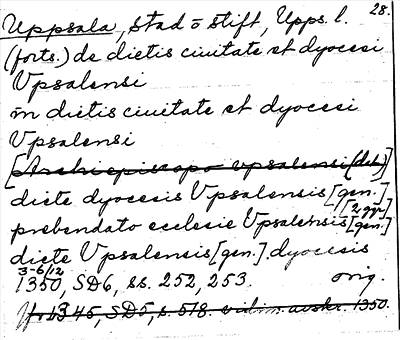 Uppsala, stad o stift, Upps. l. 28.
(forts.) de dictis ciuitate et dyocesi
Vpsalensi
in dictis ciuitate et dyocesi
Vpsalensi
[Archiepiscopo vpsalensi (dat.)]
dicte dyocesis Vpsalensis [gen.]
[2 ggr]
prebendato ecclesie Vpsalensis [gen.]
dicte Vpsalensis [gen.] dyocesis
3-6/12
1350, SD6, ss. 252, 253. orig.
1345, SD5, s. 518. vidim. avskr. 1350.